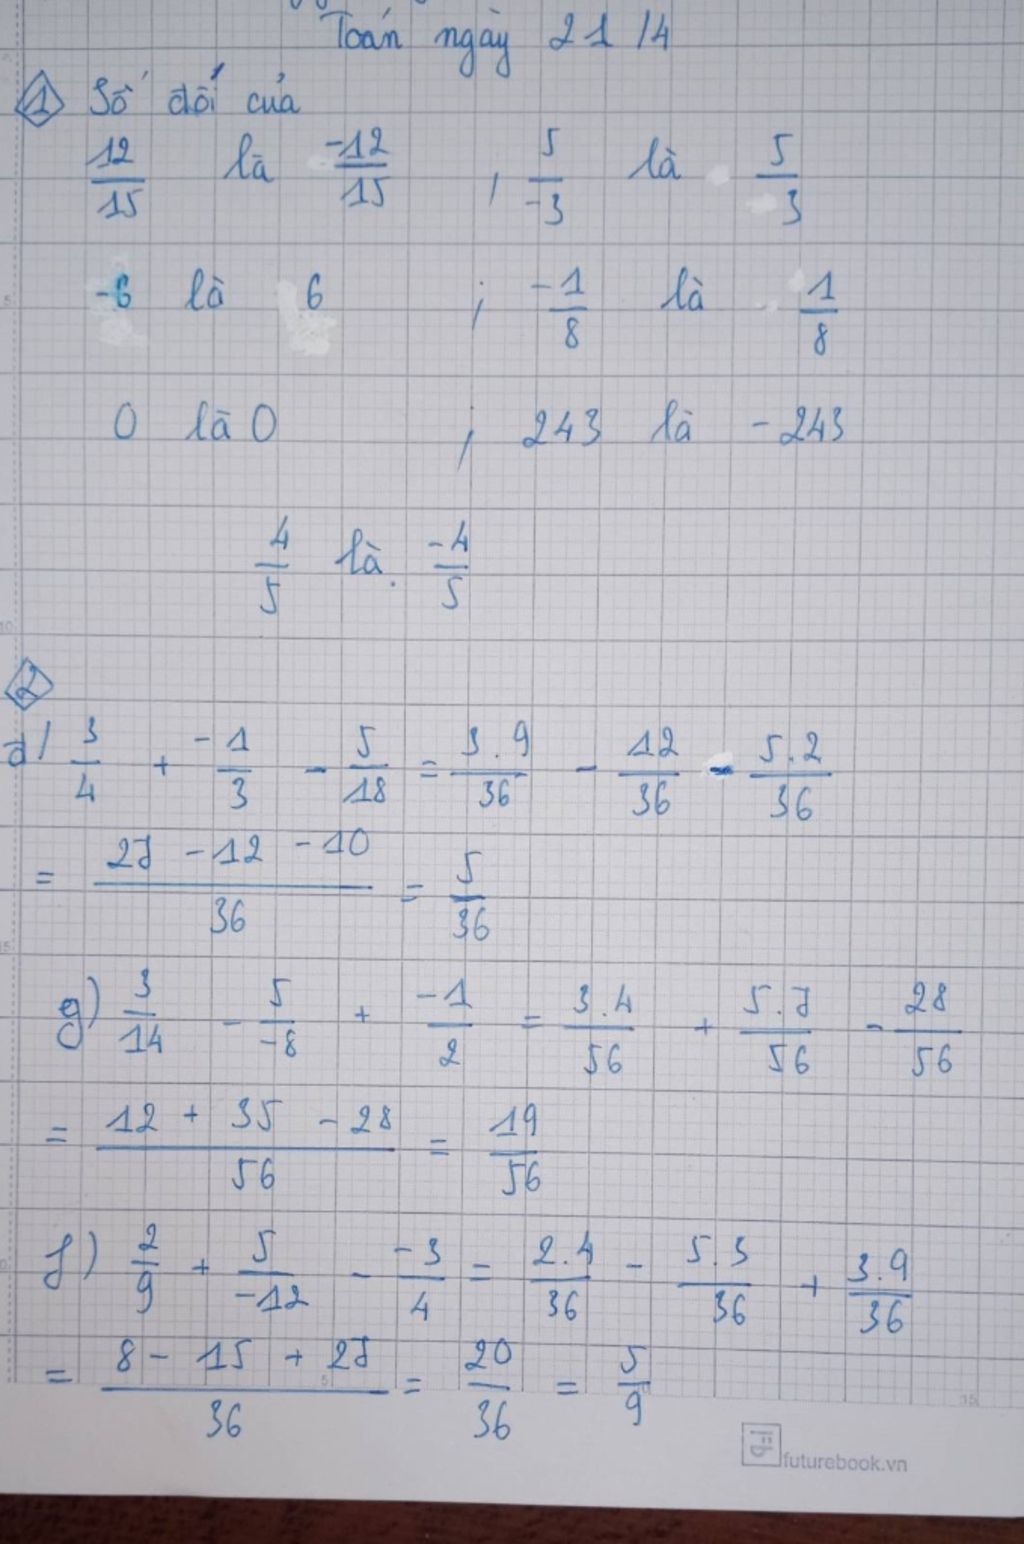 Toán ngày 21/4
1 Số đối của
12/15 là -12/15 ; 5/-3 là 5/3
-6 là 6 ; -1/8 là 1/8
0 là 0 ; 243 là -243
4/5 là -4/5
2
d/ 3/4 + -1/3 - 5/18 = 3.9/36 - 12/36 - 5.2/36
= 27 - 12 - 10/36 = 5/36
g) 3/14 - 5/-8 + -1/2 = 3.4/56 + 5.7/56 - 28/56
= 12 + 35 - 28/56 = 19/56
f) 2/9 + 5/-12 - -3/4 = 2.4/36 - 5.3/36 + 3.9/36
= 8 - 15 + 27/36 = 20/36 = 5/9
futurebook.vn